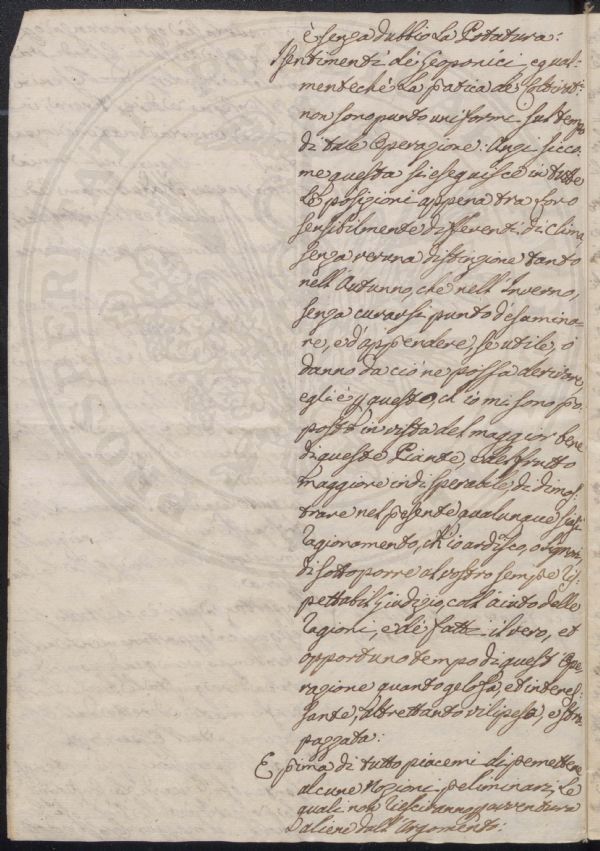 è senza dubbio La Potatura:
Sentimenti dei Geoponici, egual-
mente ché La pratica de' Coltivat:
non sono punto uniformi sul tempo
di tale Operazione: Anzi sicco-
me questa si eseguisce in tutte
Le posizioni appena tra Loro
sensibilmente differenti di clima,
senza veruna distinzione tanto
nell'Autunno, che nell'Inverno,
senza curarsi punto d'esamina-
re, e d'apprendere, se utile, o
danno da ciò ne possa derivare,
egli è p questo, ch'io mi sono pro-
posto in vista del maggior bene
di queste Piante, e del frutto
maggiore indi sperabile, di dimos-
trare nel presente qualunque siasi
ragionamento, ch'io ardisco, o Signori,
di sottoporre al vostro sempre ris-
pettabil Giudizio, coll'aiuto delle
ragioni, e de' fatti il vero, et
opportuno tempo di quest'Ope-
razione quanto gelosa, et interes-
sante, altrettanto vilipesa, e stra-
pazzata:
E prima di tutto piacemi di premettere
alcune Nozioni preliminari, Le
quali non riesciranno pavventura
aliene dall'Argomento: